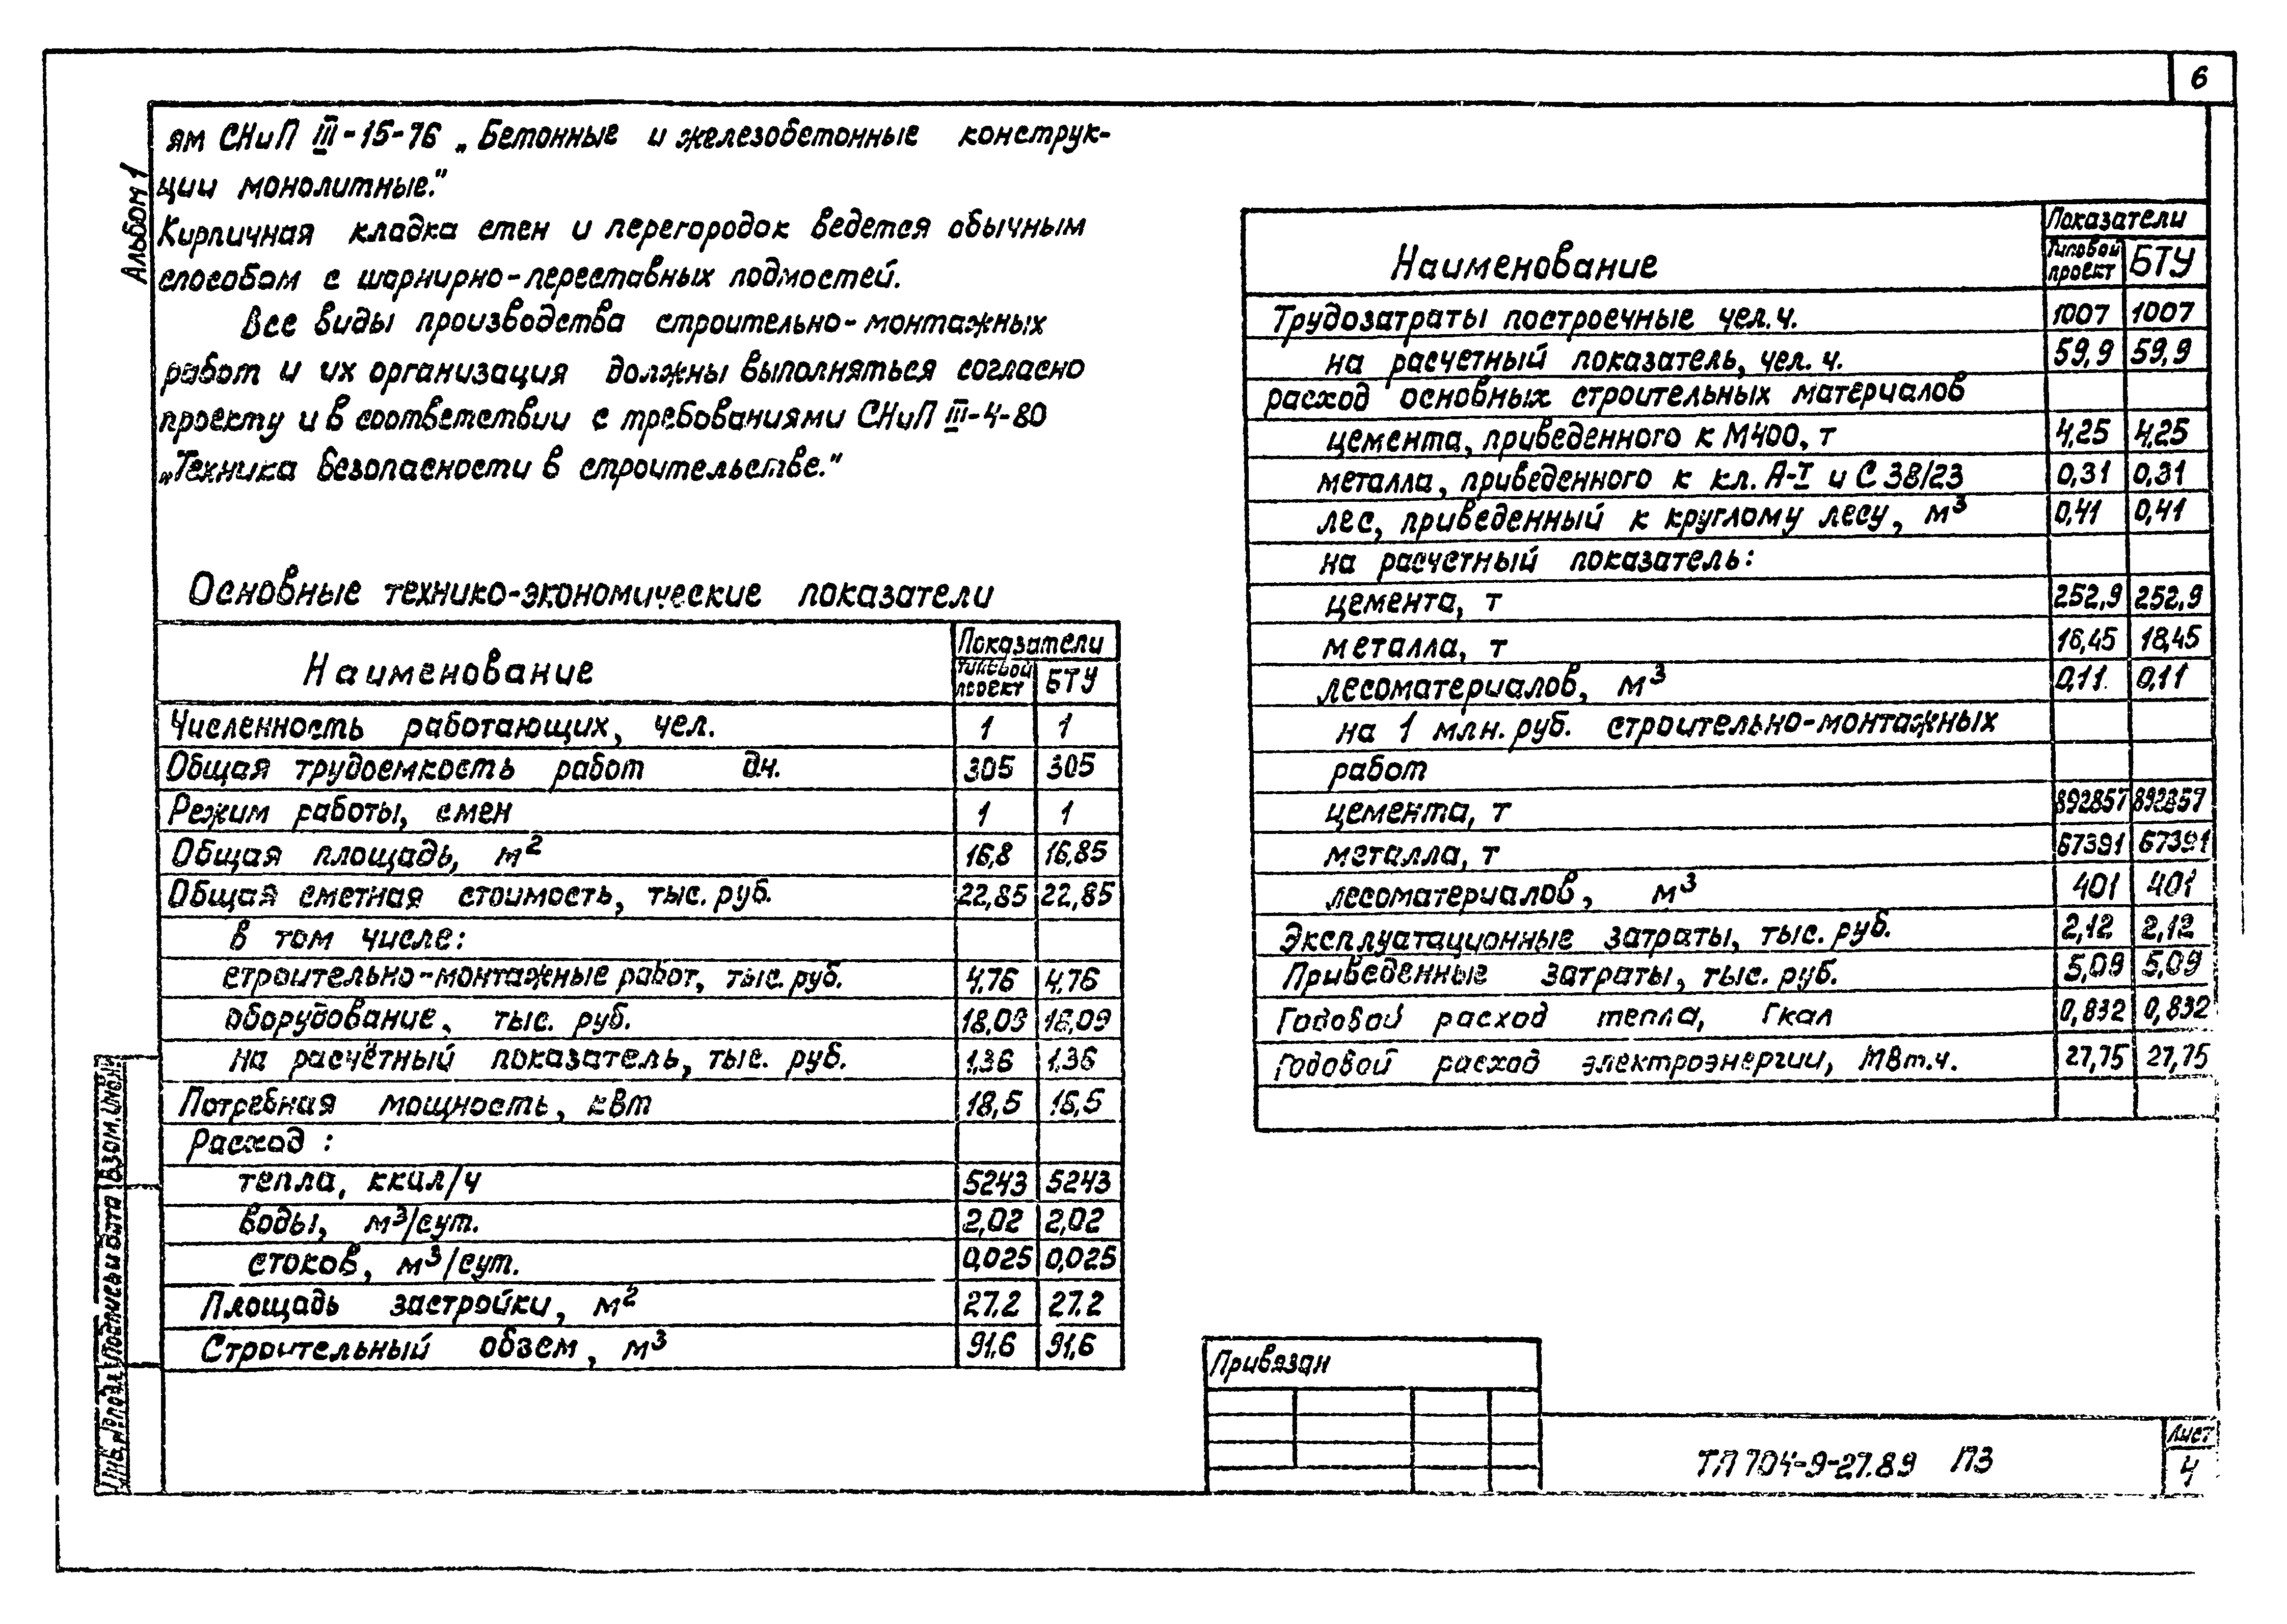 6
Альбом 1
ям СНиП III-15-76 „Бетонные и железобетонные конструк-
ции монолитные."
Кирпичная кладка стен и перегородок ведется обычным
способом с шарнирно-переставных подмостей.
Все виды производства строительно-монтажных
работ и их организация должны выполняться согласно
проекту и в соответствии с требованиями СНиП III-4-80
„Техника безопасности в строительстве."
Основные технико-экономические показатели
Наименование Показатели
типовой проект БТУ
Численность работающих, чел. 1 1
Общая трудоемкость работ дн. 305 305
Режим работы, смен 1 1
Общая площадь, м2 16,8 16,85
Общая сметная стоимость, тыс. руб. 22,85 22,85
в том числе:
строительно-монтажные работ, тыс. руб. 4.76 4.76
оборудование, тыс. руб. 18,09 18,09
на расчётный показатель, тыс. руб. 1,36 1.36
Потребная мощность, кВт 18,5 18,5
Расход :
тепла, ккал/ч 5243 5243
воды, м3/сут. 2,02 2,02
стоков, м3/сут. 0,025 0,025
Площадь застройки, м2 27.2 27.2
Строительный обзем, м3 91,6 91,6
Наименование Показатели
Типовой проект БТУ
Трудозатраты построечные чел.ч. 1007 1007
на расчетный показатель, чел. ч. 59,9 59,9
расход основных строительных материалов
цемента, приведенного к М400, т 4,25 4,25
металла, приведенного к кл. А-I и С 38/23 0,31 0,31
лес, приведенный к круглому лесу, м3 0,41 0,41
на расчетный показатель:
цемента, т 252,9 252,9
металла, т 18,45 18,45
лесоматериалов, м3 0,11 0,11
на 1 млн. руб. строительно-монтажных
работ
цемента, т 892857 892857
металла, т 67391 67391
лесоматериалов, м3 401 401
Эксплуатационные затраты, тыс. руб. 2,12 2,12
Приведенные затраты, тыс. руб. 5,09 5,09
Годовой расход тепла, Гкал 0,832 0,832
Годовой расход электроэнергии, МВт.ч. 27,75 27,75
Привязан
ТП 704-9-27.89 ПЗ
Лист
4
Инв. № подл. Подпись и дата Взам. инв. №